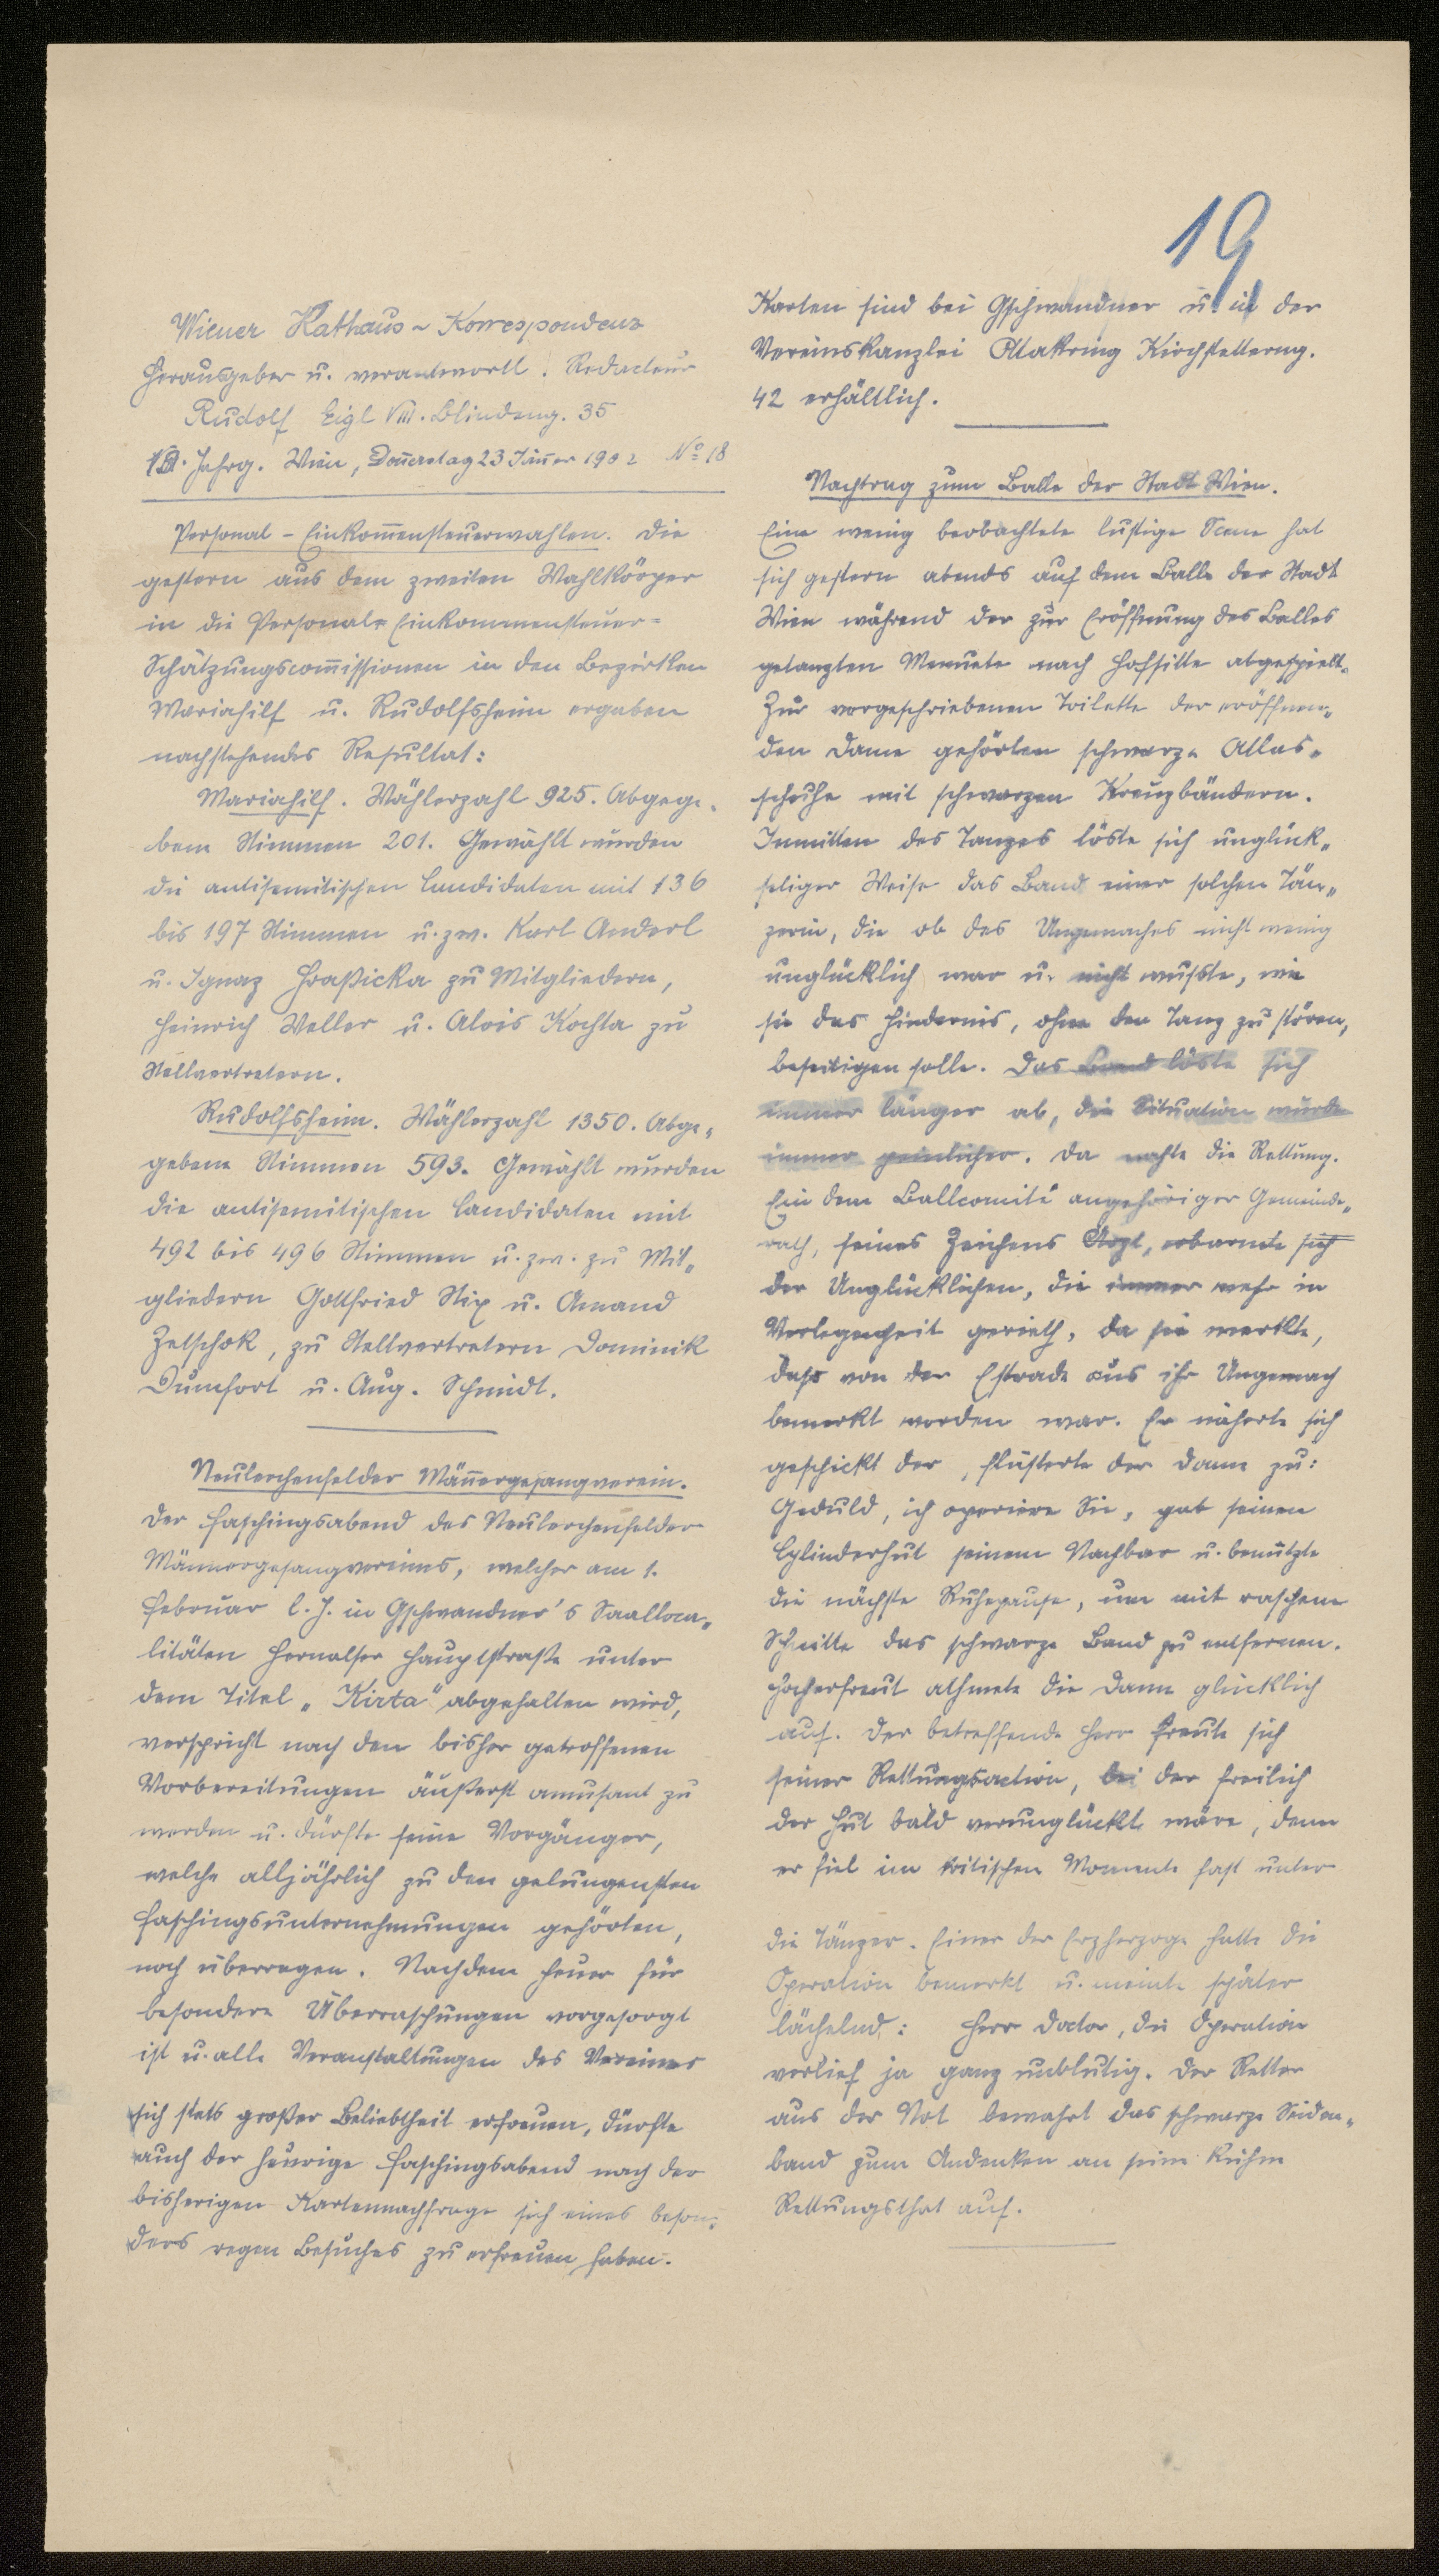 19
Wiener Rathaus-Korrespondenz
Herausgeber u. verantwortl. Redacteur
Rudolf Eigl VIII. Blindeng. 35
Jahrg. Wien, Donnerstag 23 Jänner 1902 No 18
Personal-Einkommensteuerwahlen. Die
gestern aus dem zweiten Wahlkörper
in die Personal-Einkommensteuer-
Schätzungscommissionen in den Bezirken
Mariahilf u. Rudolfsheim ergaben
nachstehendes Resultat:
Mariahilf. Wählerzahl 925. Abgege-
bene Stimmen 201. Gewählt wurden
die antisemitischen Candidaten mit 136
bis 197 Stimmen u. zw. Karl Anderl
u. Ignaz Hraßicka zu Mitgliedern,
Heinrich Weller u. Alois Kochta zu
Stellvertretern.
Rudolfsheim. Wählerzahl 1350. Abge-
gebene Stimmen 593. Gewählt wurden
die antisemitischen Candidaten mit
492 bis 496 Stimmen u. zw. zu Mit-
gliedern Gottfried Nix u. Amand
Zetschok, zu Stellvertretern Dominik
Dumfort u. Aug. Schmidt.
Neulerchenfelder Männergesangverein.
Der Faschingsabend des Neulerchenfelder
Männergesangvereins, welcher am 1.
Februar l. J. in Gschwandner's Saalloca-
litäten Hernalser Hauptstraße unter
dem Titel "Kirta" abgehalten wird,
verspricht nach den bisher getroffenen
Vorbereitungen äußerst amusant zu
werden u. dürfte seine Vorgänger,
welche alljährlich zu den gelungensten
Faschingsunternehmungen gehörten,
noch überragen. Nachdem heuer für
besondere Überraschungen vorgesorgt
ist u. alle Veranstaltungen des Vereines
sich stets großer Beliebtheit erfreuen, dürfte
auch der heurige Faschingsabend nach der
bisherigen Kartennachfrage sich eines beson-
ders regen Besuches zu erfreuen haben.
Karten sind bei Gschwandner u. in der
Vereinskanzlei Ottakring Kirchstetterng.
42 erhältlich.
Nachtrag zum Balle der Stadt Wien.
Eine wenig beobachtete lustige Scene hat
sich gestern abends auf dem Balle der Stadt
Wien während der zur Eröffnung des Balles
getanzten Menuete nach Hofsitte abgespielt.
Zur vorgeschriebenen Toilette der eröffnen-
den Dame gehörten schwarze Atlas-
schuhe mit schwarzen Kreuzbändern.
Inmitten des Tanzes löste sich unglück-
seliger Weise das Band einer solchen Tän-
zerin, die ob des Ungemaches nicht wenig
unglücklich war u. nicht wußte, wie
sie das Hindernis, ohne den Tanz zu stören,
beseitigen solle. Das Band löste sich
immer länger ab, die Situation wurde
immer peinlicher. Da nahte die Rettung.
Ein dem Ballcomité angehöriger Gemeinde-
rath, seines Zeichens Arzt, erbarmte sich
der Unglücklichen, die immer mehr in
Verlegenheit gerieth, da sie merkte,
daß von der Estrade aus ihr Ungemach
bemerkt worden war. Er näherte sich
geschickt der, flüsterte der Dame zu:
Geduld, ich operiere Sie, gab seinen
Cylinderhut seinem Nachbar u. benützte
die nächste Ruhepause, um mit raschem
Schnitte das schwarze Band zu entfernen.
Hocherfreut athmete die Dame glücklich
auf. Der betreffende Herr freute sich
seiner Rettungsaction, bei der freilich
der Hut bald verunglückt wäre, denn
er fiel im kritischen Momente fast unter
die Tänzer. Einer der Erzherzoge hatte die
Operation bemerkt u. meinte später
lächelnd: Herr Doctor, die Operation
verlief ja ganz unblutig. Der Retter
aus der Not bewahrt das schwarze Seiden-
band zum Andenken an seine kühne
Rettungsthat auf.